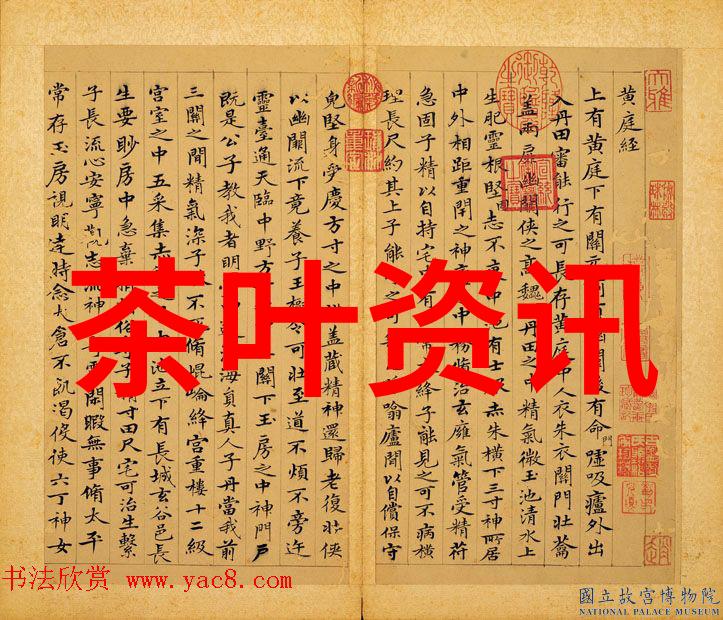 黄庭経
上有黄庭下有關元後有命門噓吸廬外出
入丹田審能行之可長存黄庭中人衣朱衣關門壯籥
盖兩扉幽闕俠之高魏丹田之中精氣微玉池清水上
生肥靈根堅志不衰中池有士服赤朱橫下三寸神所居
中外相距重閇之神之中務脩治玄廱氣管受精符
急固子精以自持宅中有絳子能見之可不病橫
理長尺約其上子能之可噏廬間以自償保守
完堅身受慶方寸之中盖藏精神還歸老復壯俠
以幽闕流下竟養子玉令可壯至道不煩不旁迕
靈臺通天臨中野方關下玉房之中神門戶
既是公子教我者明海負真人子丹當我前
三關之間精氣深子不死脩崐崘絳宮重樓十二級
宮室之中五采集池立下有長城玄谷邑長
生要眇房中急棄俗子寸田尺宅可治生繫
子長流心安寧觀志流神靈閑暇無事脩太平
常存玉房視明達時念大倉不飢渴役使六丁神女
茶叶资讯
书法欣赏 www.yac8.com
國立故宮博物院
NATIONAL PALACE MUSEUM